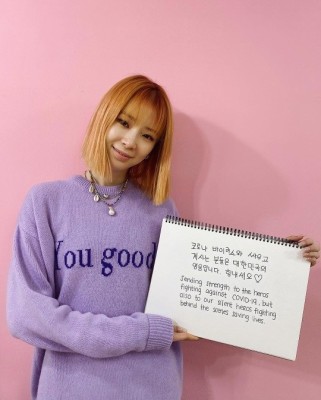 You good
코로나 바이러스와 싸우고
계시는 분들은 대한민국의
영웅입니다. 힘내세요♡
Sending strength to the heros
fighting against COVID-19, but
also to our silent heros fighting
behind the scenes saving lives.